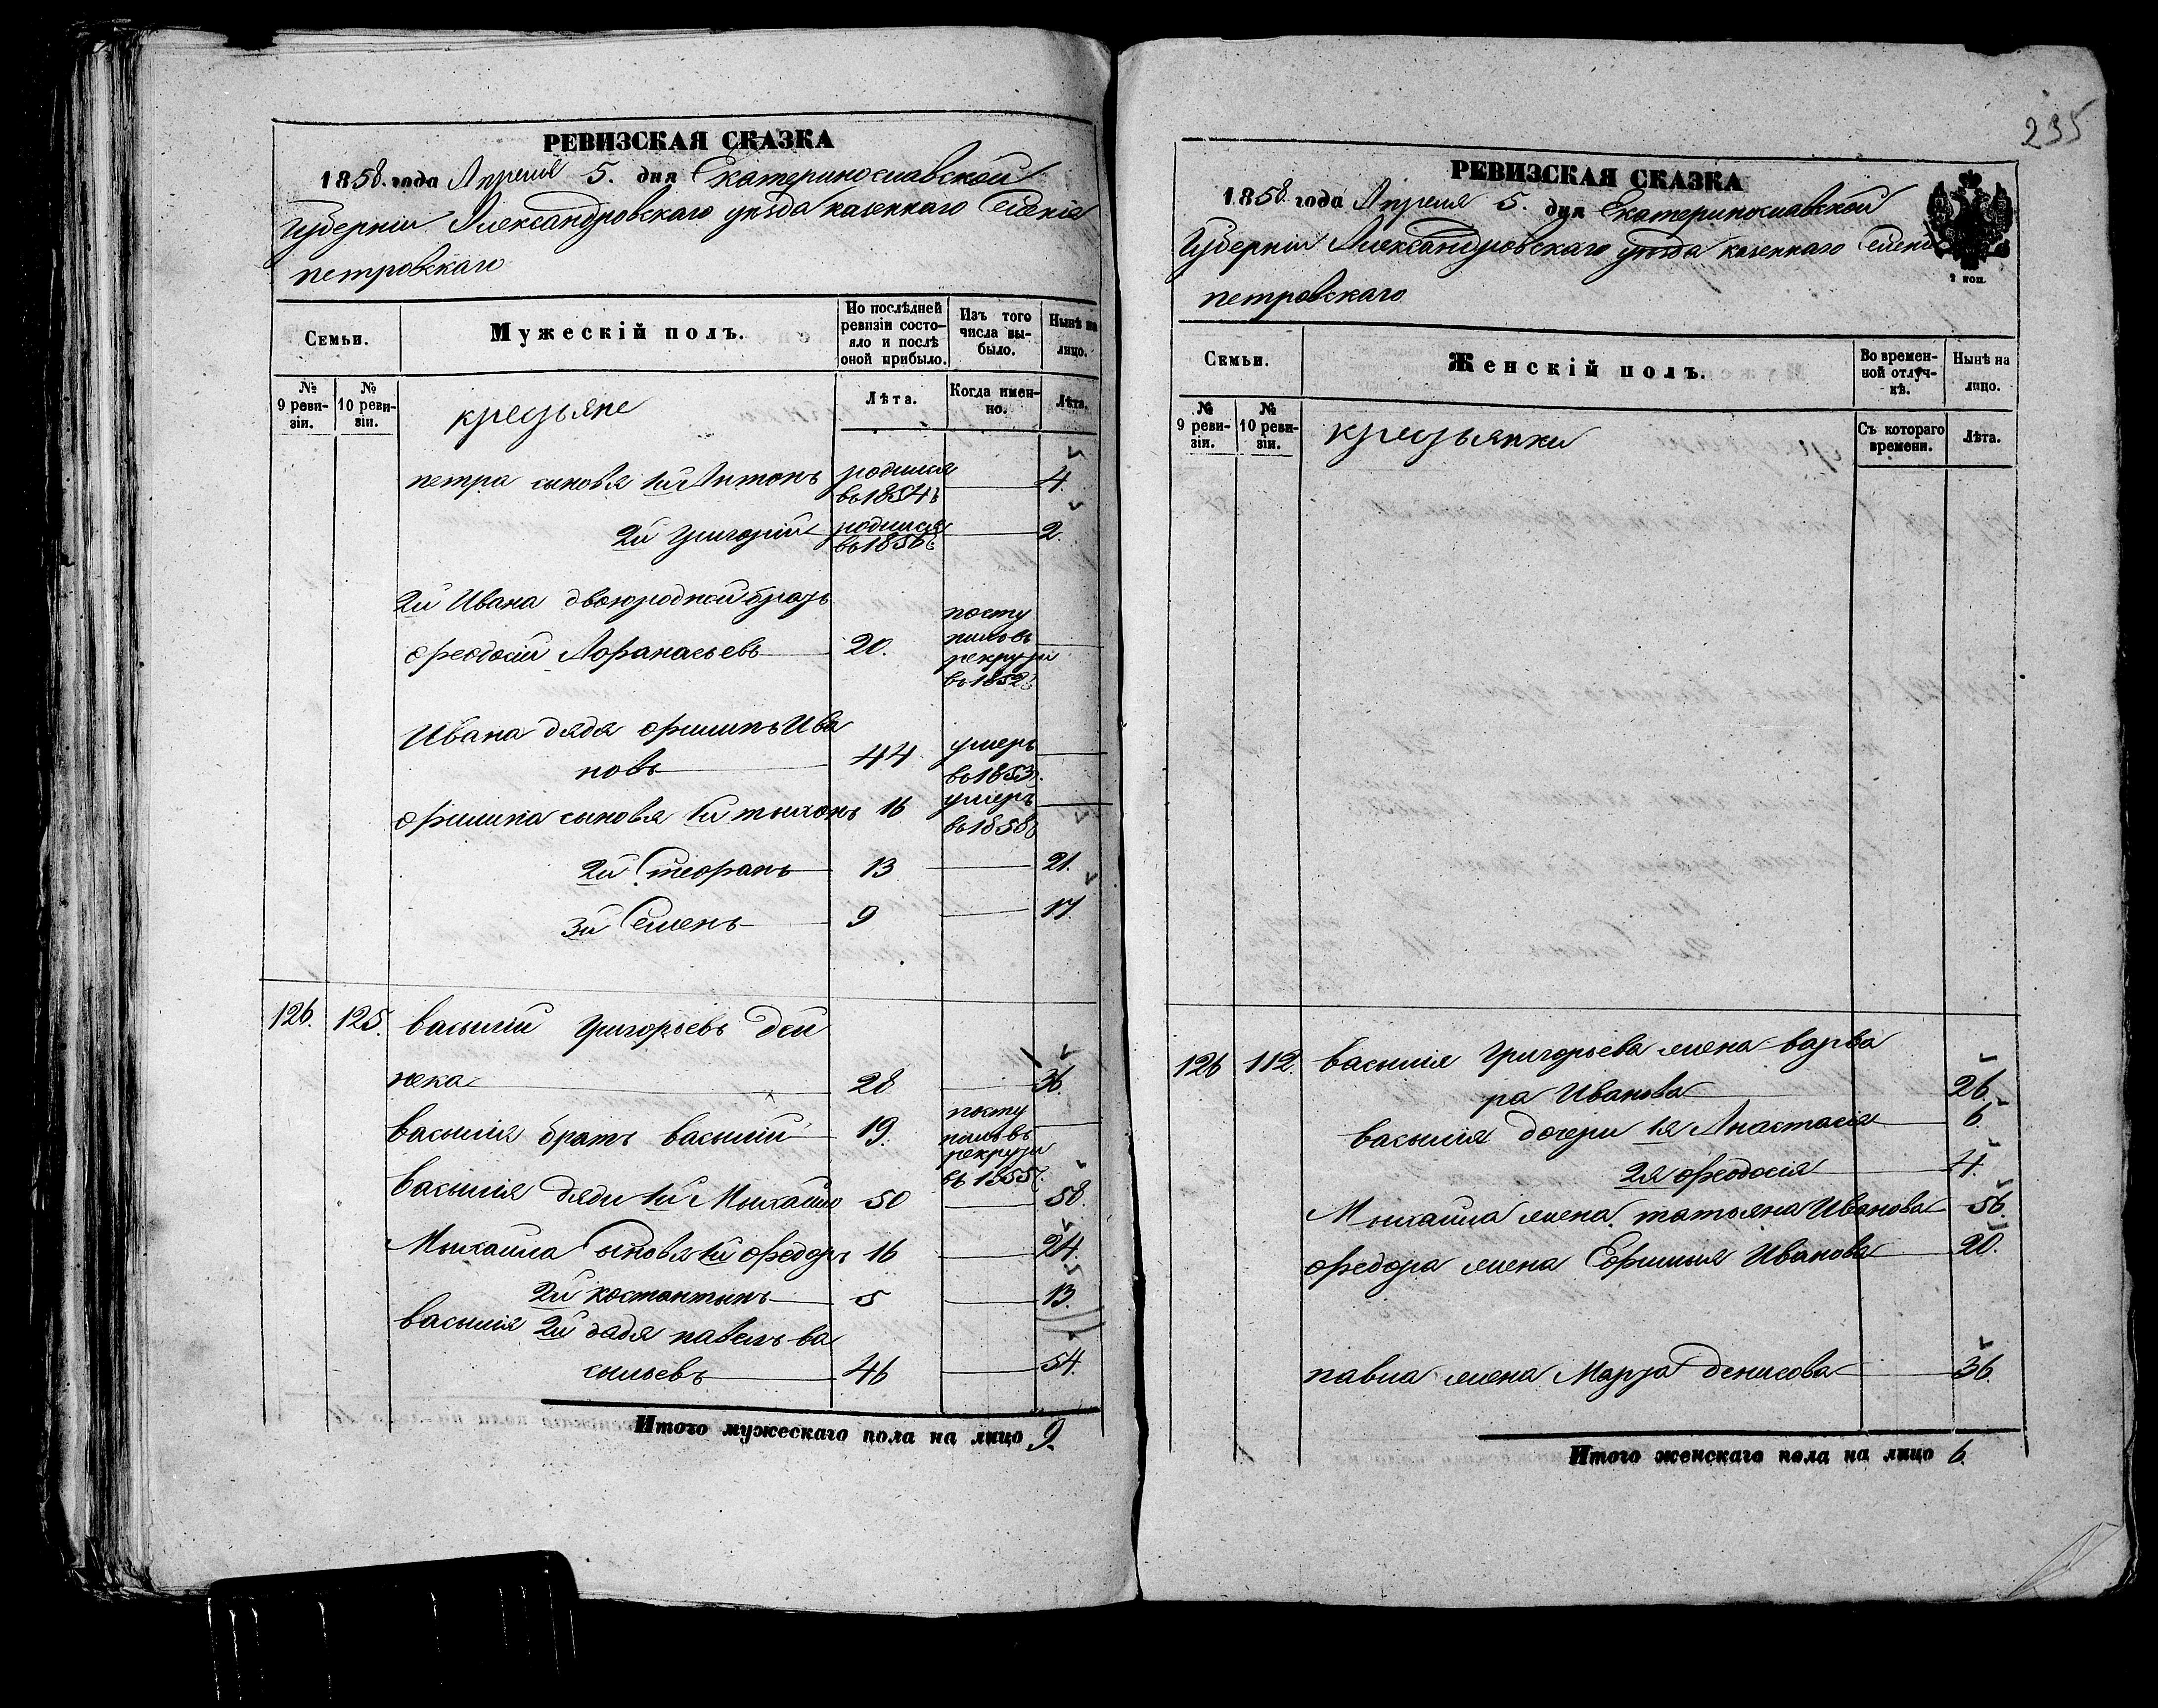 РЕВИЗСКАЯ СКАЗКА
1858. года Апреля 5. дня Екатеринославской
Губерніи Александровскаго уезда казеннаго Селенія
петровскаго
Семьи.
Мужескій полъ.
По послѣдней ревизіи состояло и послѣ оной прибыло.
Изъ того числа выбыло.
Нынѣ на лицо.
№ 9 ревизіи.
№ 10 ревизіи.
крестьяне
Лѣта.
Когда именно.
Лѣта.
петра сыновья 1й Антонъ родился въ 1854 4.
2й Григорій родился въ 1856 2.
2й Ивана двоюродной братъ
Феодосій Афанасьевъ 20. поступилъ въ рекруты въ 1852
Ивана дядя Филипъ Ива
новъ 44 умеръ въ 1853
Филипа сыновья 1й тихонъ 16 умеръ въ 1858
2й Стефанъ 13 21.
3й Семенъ 9 17.
126. 125. василій Григорьевъ Дей
нека 28 36.
василія братъ василій 19. поступилъ въ рекруты въ 1855
василія дяди 1й Михайло 50 58.
Михаила Сыновья 1й Федоръ 16 24.
2й костантинъ 5 13.
василія 2й дядя павелъ ва
сильевъ 46 54.
Итого мужескаго пола на лицо 9.
235
РЕВИЗСКАЯ СКАЗКА
1858. года Апреля 5. дня Екатеринославской
Губерніи Александровскаго уезда казеннаго Селенія
петровскаго
Семьи.
Женскій полъ.
Во временной отлучкѣ.
Нынѣ на лицо.
№ 9 ревизіи.
№ 10 ревизіи.
крестьянки
Съ котораго времени.
Лѣта.
126 112. василія Григорьева жена варва
ра Иванова 26.
василія дочери 1я Анастасія 6.
2я Феодосія 4.
Михаила жена татьяна Иванова 56.
Федора жена Ефимия Иванова 20.
павла жена Марфа денисова 36.
Итого женскаго пола на лицо 6.